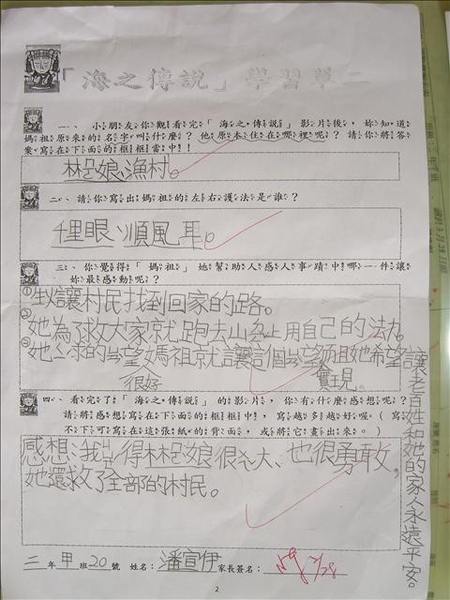 「海之傳說」學習單二
一、小朋友你觀看完「海之傳說」影片後,妳知道
媽祖原來的名字叫什麼?他原本住在哪裡呢?請你將答
案寫在下面的框框當中!
林ㄇㄛˋ娘、漁村。
二、請你寫出媽祖的左右護法是誰?
千里眼、順風耳。
三、你覺得「媽祖」她幫助人感人事蹟中哪一件讓
妳最感動呢?
讓村民找到回家的路。
她為了救大家就跑去山上用自己的法力。
很好
讓老百姓和她的家人永遠平安。
四、看完了「海之傳說」的影片,你有什麼感想?
請將感想寫在下面的框框中,寫越多越好喔。(寫
不下可寫在這張紙的背面,或將它畫出來。)
感想:我ㄐㄩㄝˊ得林ㄇㄛˋ娘很ㄨㄟˇ大、也很勇敢,
她還救了全部的村民。
三年甲班20號 姓名:潘宣伊 家長簽名:
2